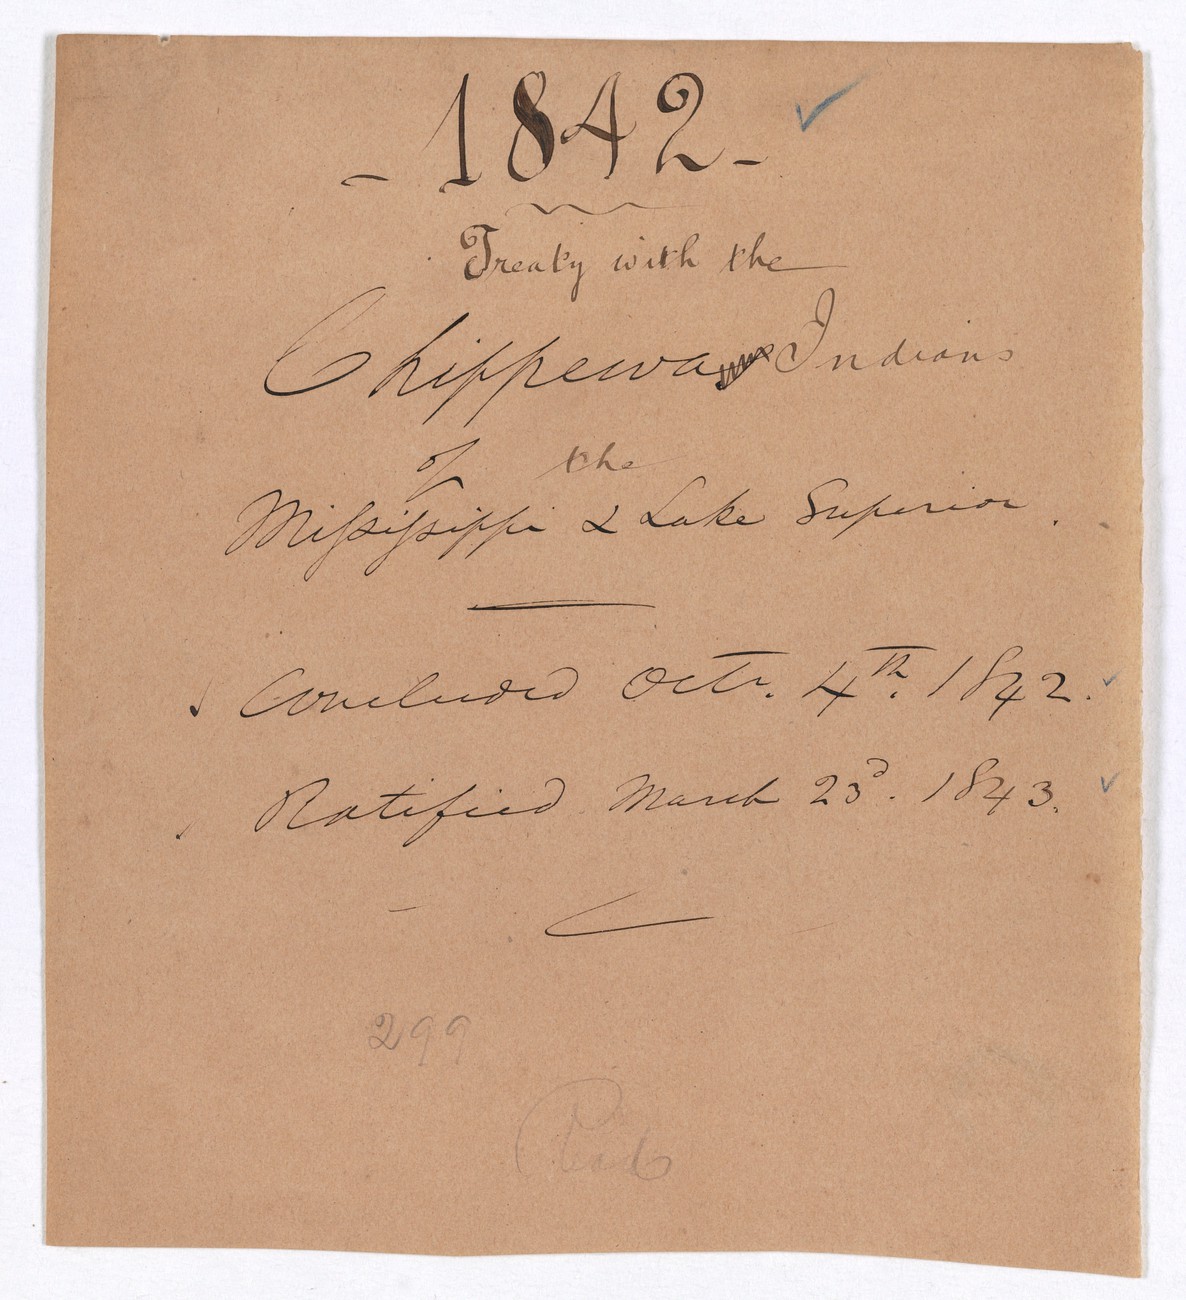 - 1842 -
Treaty with the
Chippewa Indians
of the
Mississippi & Lake Superior.
Concluded Octr. 4th. 1842.
Ratified March 23d. 1843.
299